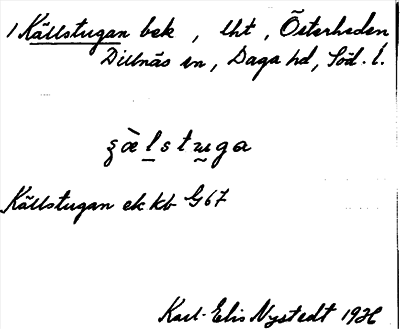 1 Källstugan bek, lht, Österheden
Dillnäs sn, Daga hd, Söd. l.
Källstugan ek kb G67
Karl-Elis Nystedt